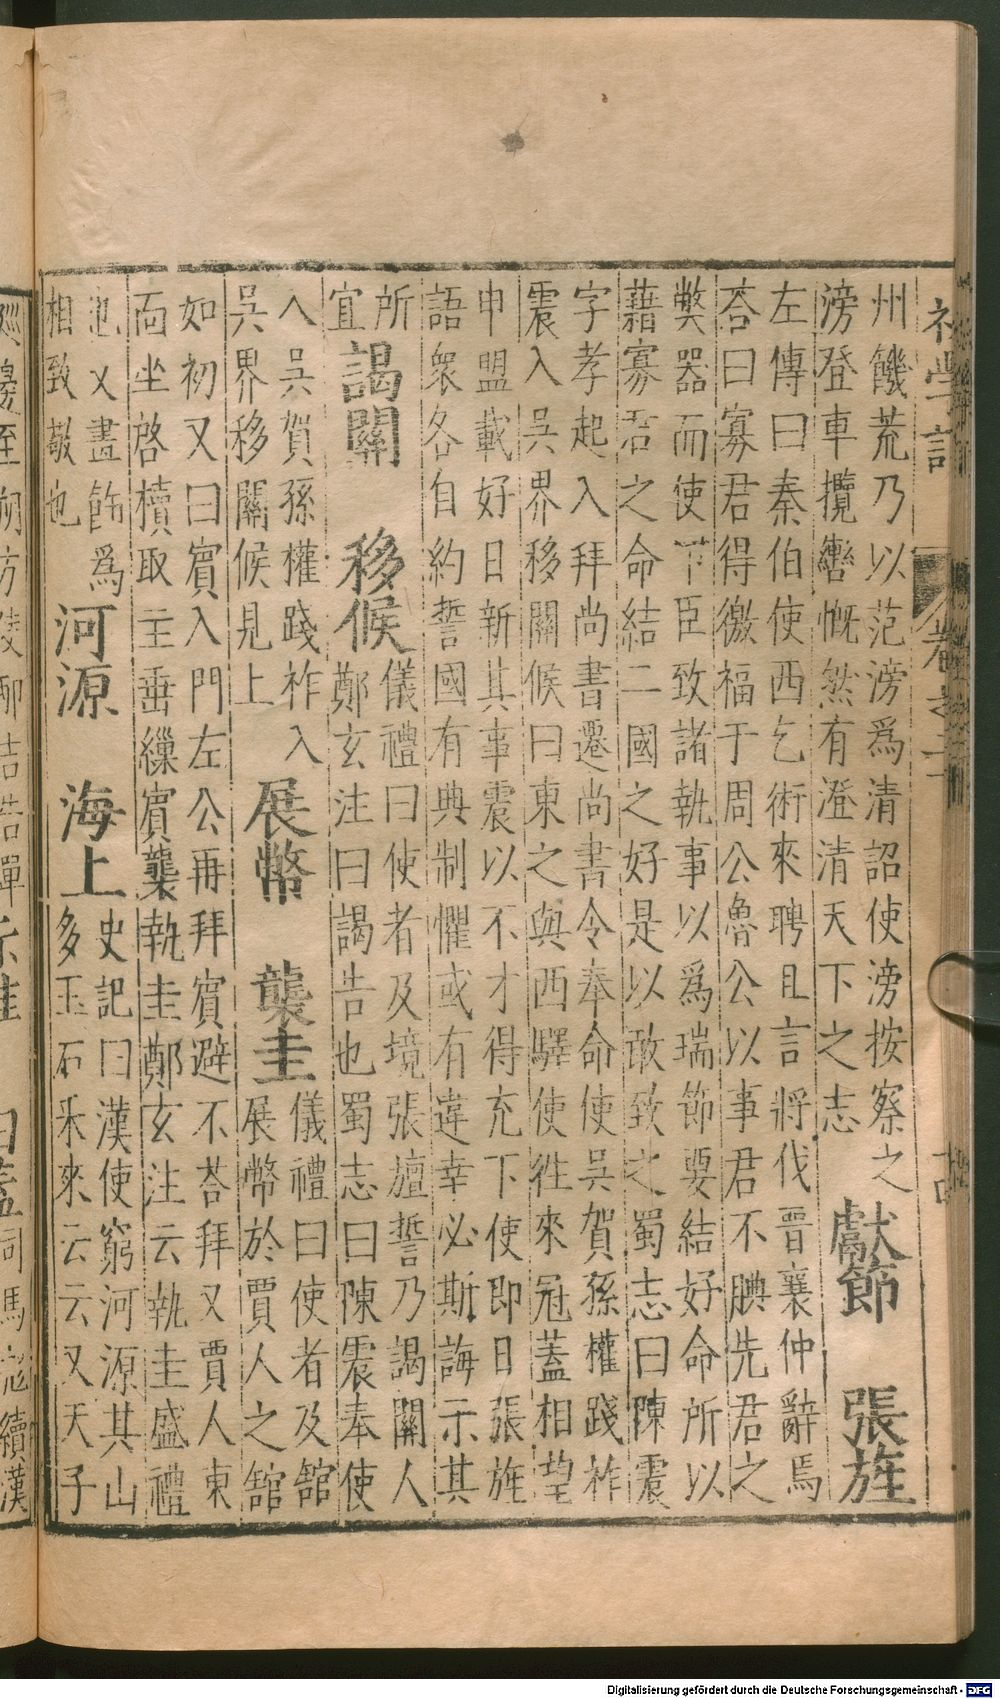 初學記 卷之二十 十四
州饑荒乃以范滂爲清詔使滂按察之
滂登車攬轡慨然有澄清天下之志
獻節 張旌
左傳曰秦伯使西乞術來聘且言將伐晉襄仲辭焉
荅曰寡君得徼福于周公魯公以事君不腆先君之
獘器而使下臣致諸執事以爲瑞節要結好命所以
藉寡君之命結二國之好是以敢致之蜀志曰陳震
字孝起入拜尚書遷尚書令奉命使吳賀孫權踐祚
震入吳界移關候曰東之與西驛使徃來冠蓋相望
申盟載好日新其事震以不才得充下使即日張旌
語衆各自約誓國有典制懼或有違幸必斯誨示其
所
宜
謁關 移候
儀禮曰使者及境張旜誓乃謁關人
鄭玄注曰謁告也蜀志曰陳震奉使
入吳賀孫權踐祚入
吳界移關候見上
展幣 襲圭
儀禮曰使者及舘
展幣於賈人之舘
如初又曰賓入門左公再拜賓避不荅拜又賈人東
面坐啓櫝取主垂繅賓襲執圭鄭玄注云執圭盛禮
也又盡飾爲
相致敬也
河源 海上
史記曰漢使窮河源其山
多玉石采來云云又天子
Digitalisierung gefördert durch die Deutsche Forschungsgemeinschaft - DFG